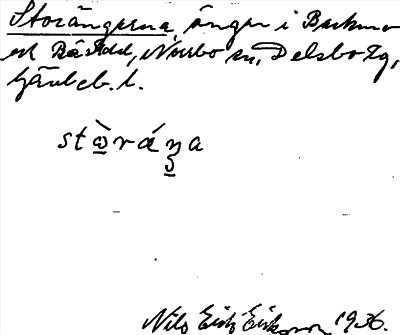 Storängerna, ängar i Backmo
och Rästad, Norrbo sn, Delsbo tg,
Gävleb. l.
stὼ̱ráŋ̱a
Nils Erik Eriksson 1936.